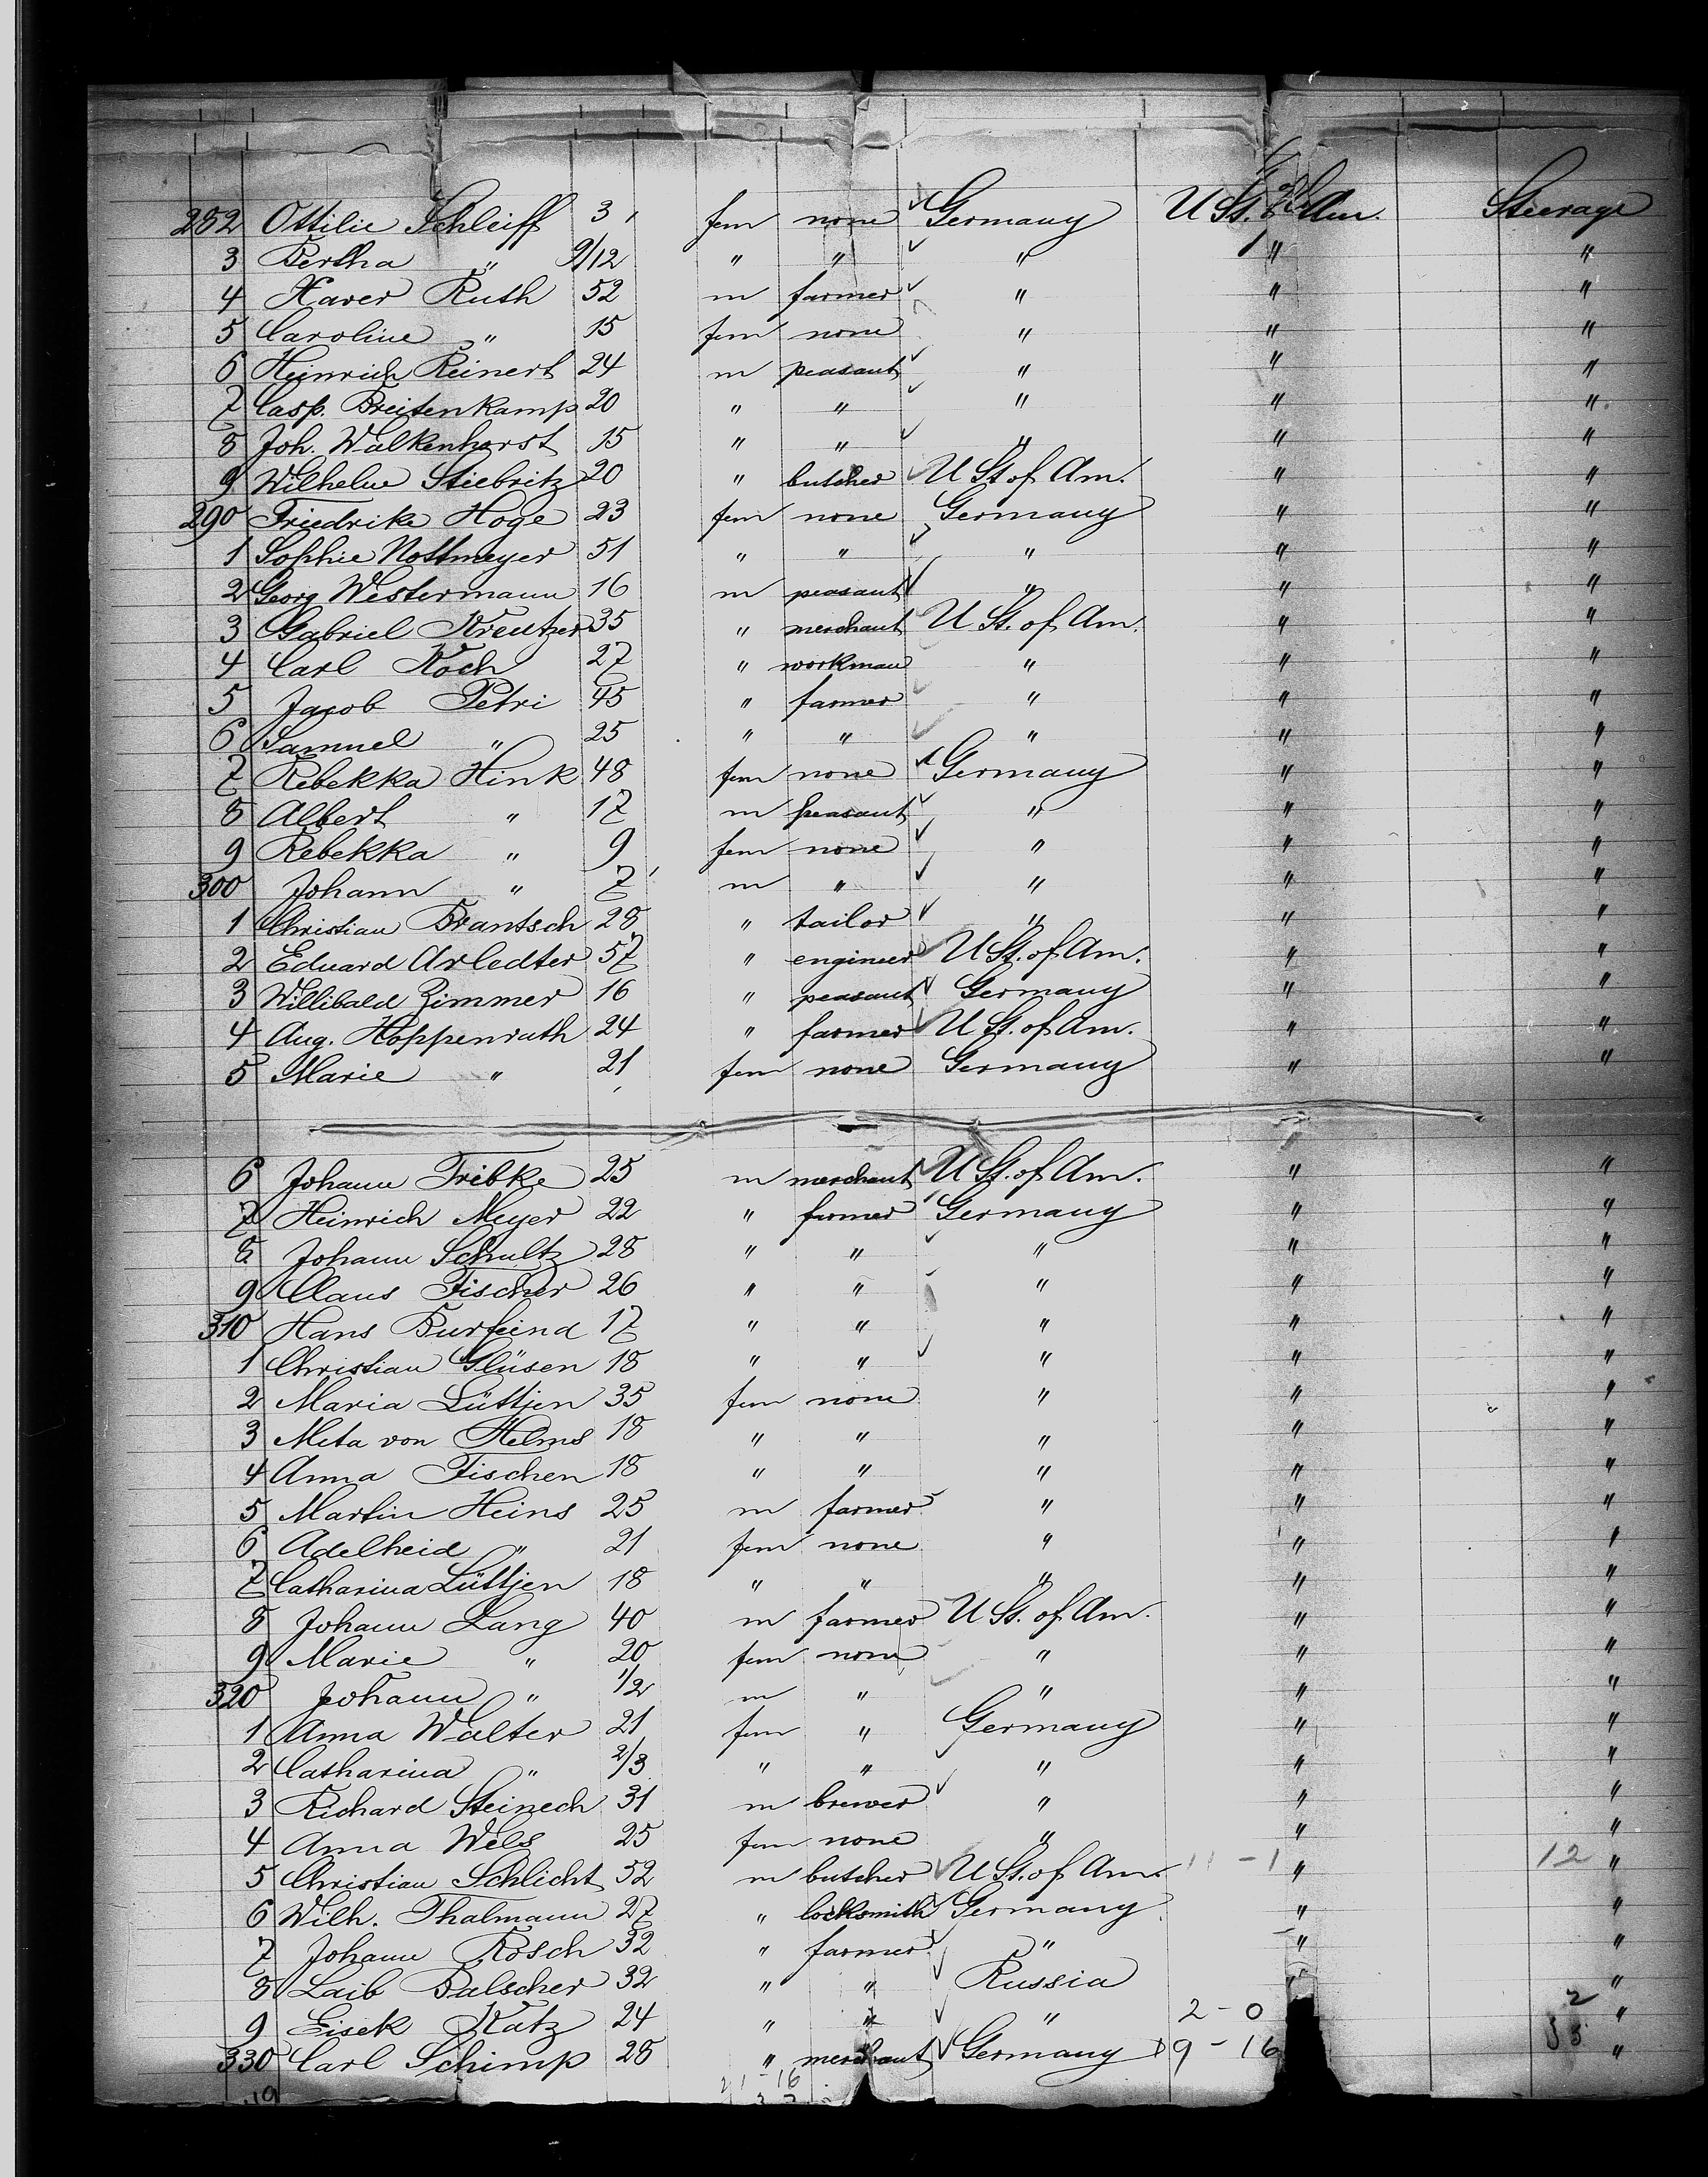 282 Ottilie Schleiff 3 fem none Germany U St. of Am. Steerage
3 Bertha " 9/12 " " " " "
4 Xaver Ruth 52 m farmer " " "
5 Caroline " 15 fem none " " "
6 Heinrich Reinert 24 m peasant " " "
7 Casp. Breitenkamp 20 " " " " "
8 Joh. Walkenhorst 15 " " " " "
9 Wilhelm Stiebritz 20 " butcher U St of Am. " "
290 Friedrike Hoge 23 fem none Germany " "
1 Sophie Nottmeyer 51 " " " " "
2 Georg Westermann 16 m peasant " " "
3 Gabriel Kreutzer 35 " merchant U St. of Am. " "
4 Carl Koch 27 " workman " " "
5 Jacob Petri 45 " farmer " " "
6 Samuel " 25 " " " " "
7 Rebekka Hink 48 fem none Germany " "
8 Albert " 17 m peasant " " "
9 Rebekka " 9 fem none " " "
300 Johann " 7 m " " " "
1 Christian Brantsch 28 " tailor " " "
2 Eduard Arledter 57 " engineer U St. of Am. " "
3 Willibald Zimmer 16 " peasant Germany " "
4 Aug. Hoppenrath 24 " farmer U St. of Am. " "
5 Marie " 21 fem none Germany " "
6 Johann Tribke 25 m merchant U St. of Am. " "
7 Heinrich Meyer 22 " farmer Germany " "
8 Johann Schultz 28 " " " " "
9 Claus Fischer 26 " " " " "
310 Hans Burfeind 17 " " " " "
1 Christian Glüsen 18 " " " " "
2 Maria Lüttjen 35 fem none " " "
3 Meta von Helms 18 " " " " "
4 Anna Fischen 18 " " " " "
5 Martin Heins 25 m farmer " " "
6 Adelheid " 21 fem none " " "
7 Catharina Lüttjen 18 " " " " "
8 Johann Lang 40 m farmer U St. of Am. " "
9 Marie " 20 fem none " " "
320 Johann " 1/2 m " " " "
1 Anna Walter 21 fem " Germany " "
2 Catharina " 2/3 " " " " "
3 Richard Steinech 31 m brewer " " "
4 Anna Wels 25 fem none " " "
5 Christian Schlicht 52 m butcher U St. of Am. 11 - 1 " 12 "
6 Wilh. Thalmann 27 " locksmith Germany " "
7 Johann Rosch 32 " farmer " " "
8 Laib Balscher 32 " " Russia " "
9 Eisek Katz 24 " " " 2 - 0 2 "
330 Carl Schimp 28 " merchant Germany 19 - 16 "
21 - 16